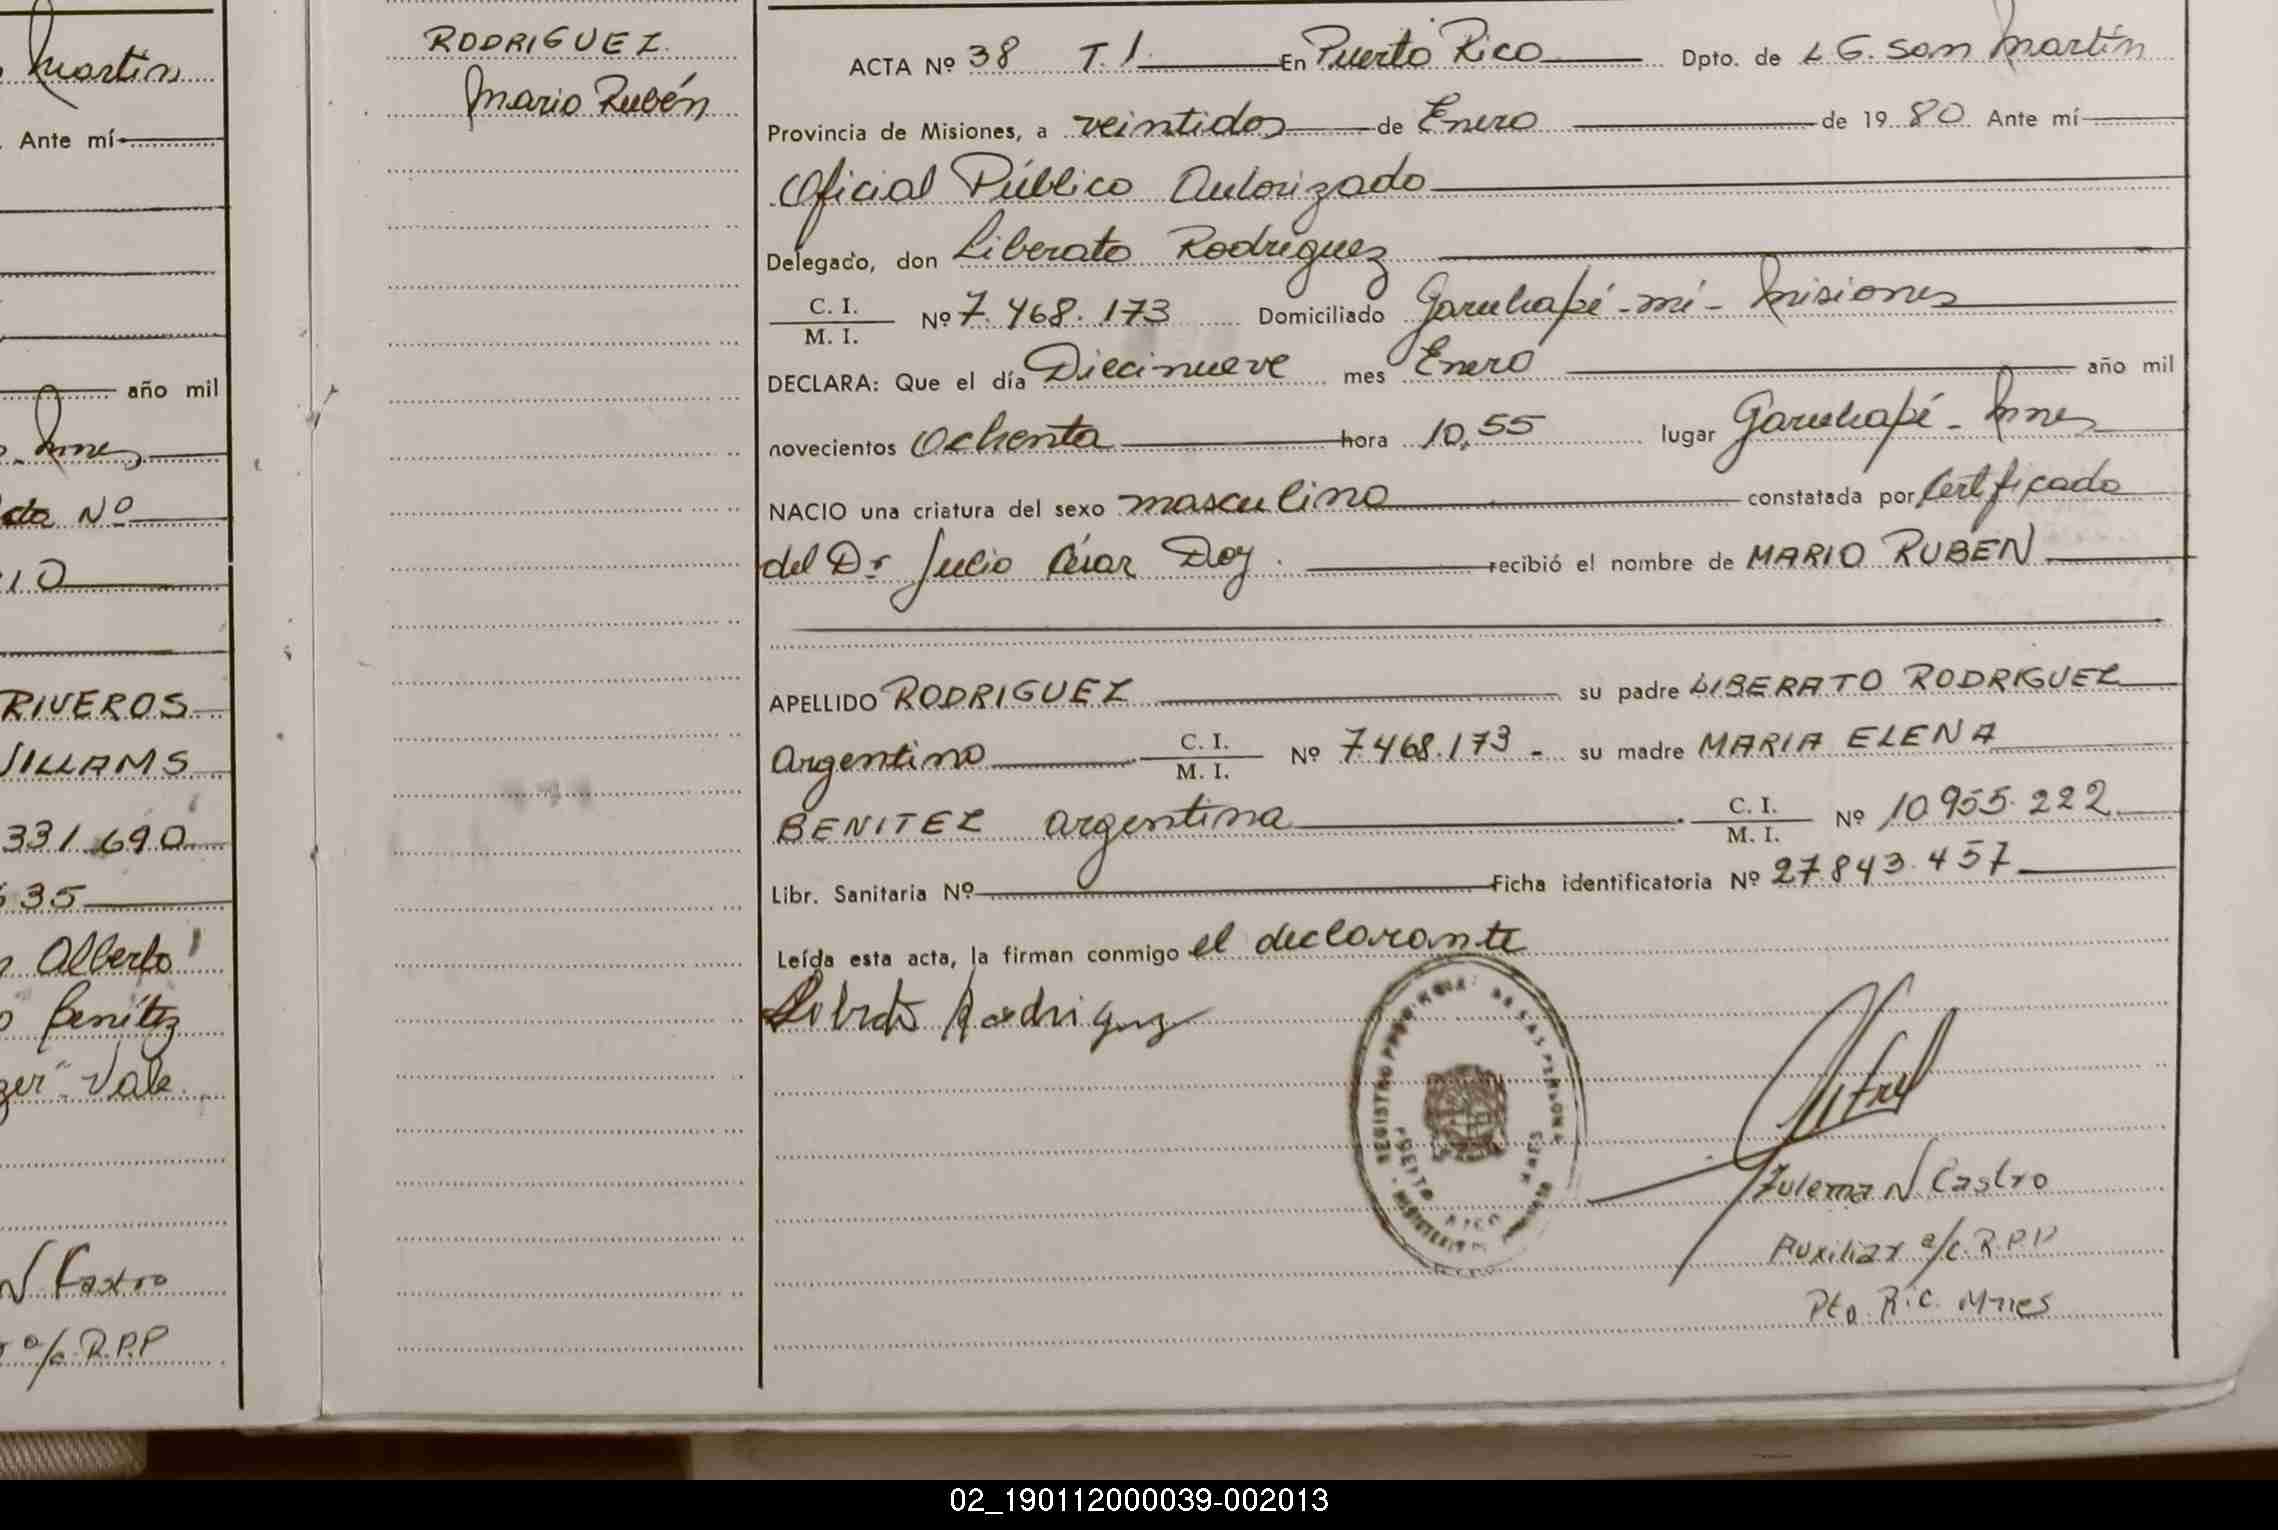 Martín
. Ante mí
año mil
Mnes
Nº
10
RIVEROS
VILLAMS
331.690
35
Alberto
Benítez
Vale
N Castro
a/c. R.P.P
RODRIGUEZ
Mario Rubén
ACTA Nº 38 T. I. En Puerto Rico Dpto. de L G. San Martín
Provincia de Misiones, a veintidos de Enero de 19 80 Ante mí
Oficial Público Autorizado
Delegado, don Liberato Rodríguez
C. I.
M. I.
Nº 7.468.173 Domiciliado Garuhapé-mí- Misiones
DECLARA: Que el día Diecinueve mes Enero año mil
novecientos Ochenta hora 10,55 lugar Garuhapé - Mnes
NACIO una criatura del sexo masculino constatada por Certificado
del Dr. Julio César Doy. recibió el nombre de MARIO RUBEN
APELLIDO RODRIGUEZ su padre LIBERATO RODRIGUEZ
Argentino C. I. M. I. Nº 7.468.173 - su madre MARIA ELENA
BENITEZ argentina C. I. M. I. Nº 10.955.222
Libr. Sanitaria Nº Ficha identificatoria Nº 27.843.457
Leída esta acta, la firman conmigo el declarante
Liberato Rodriguez
REGISTRO PROVINCIAL DE LAS PERSONAS
PUERTO RICO MNES
Zulema N Castro
Auxiliar a/c. R.P.P
Pto. Ric. Mnes
02_190112000039-002013